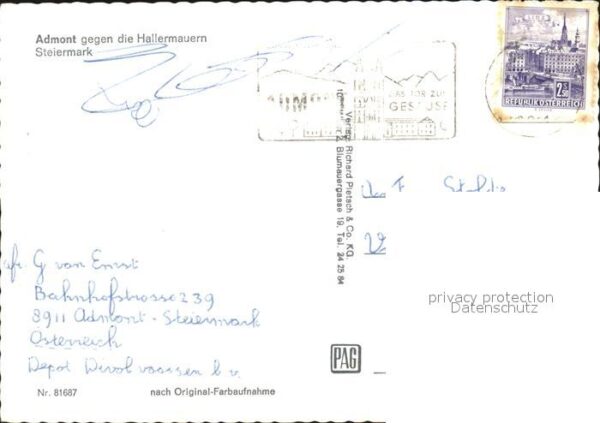 Admont gegen die Hallermauern
Steiermark
ADMONT
DAS TOR ZUM
GESÄUSE
LINZ
2.50
REPUBLIK ÖSTERREICH
Verlag Richard Pietsch & Co. KG.
Blumauergasse 19, Tel. 24 25 84
afz. G van Ernst
Bahnhofstrasse 239
8911 Admont - Steiermark
Österreich
Depot
b v
privacy protection
Datenschutz
PAG
Nr. 81687
nach Original-Farbaufnahme